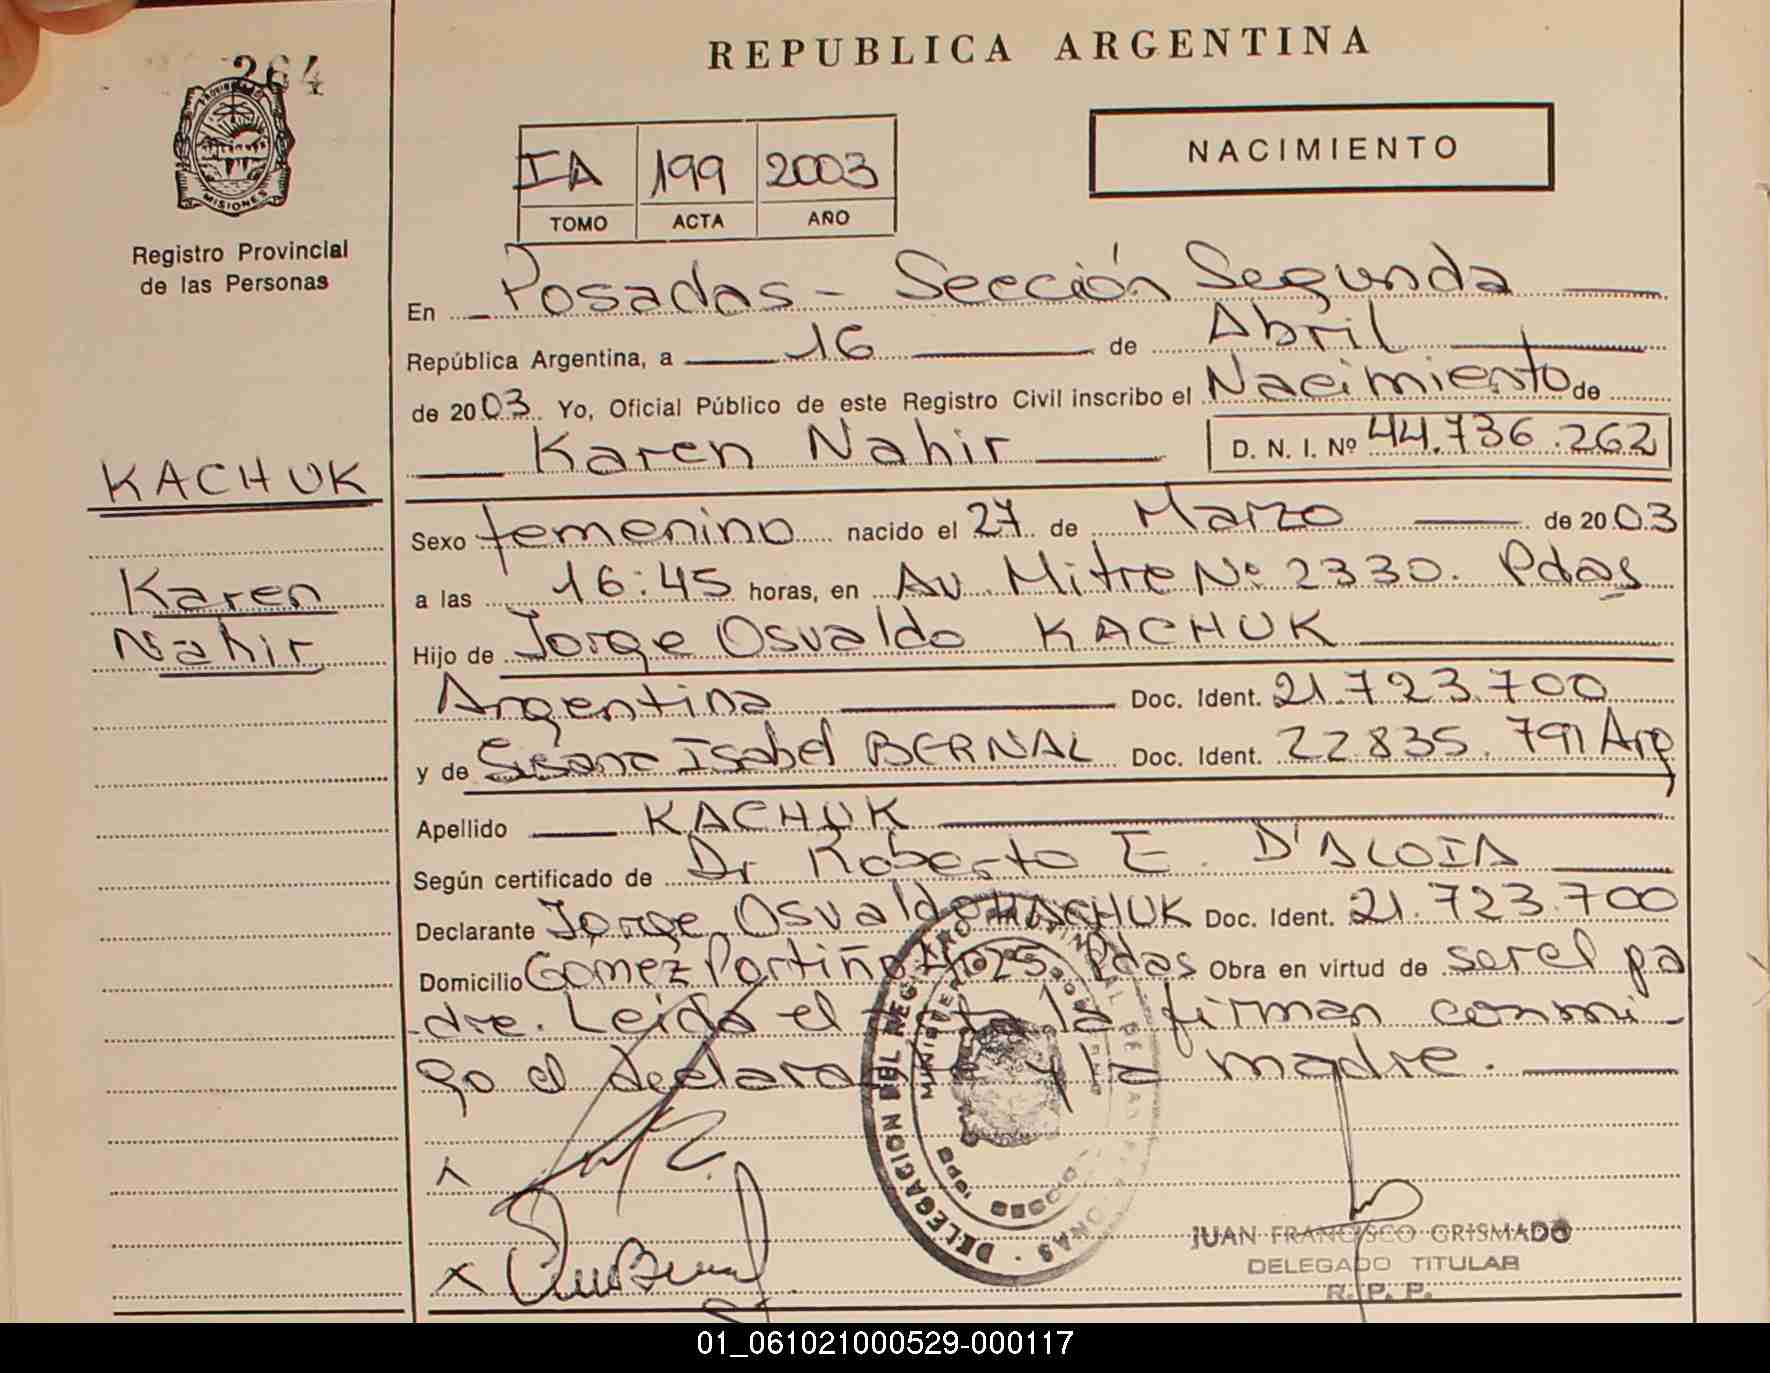 264
REPUBLICA ARGENTINA
PROVINCIA DE MISIONES
Registro Provincial
de las Personas
IA 199 2003
TOMO ACTA AÑO
NACIMIENTO
En Posadas - Sección Segunda
República Argentina, a 16 de Abril
de 2003 Yo, Oficial Público de este Registro Civil inscribo el Nacimiento de
Karen Nahir D. N. I. Nº 44.736.262
KACHUK
Karen
Nahir
Sexo femenino nacido el 27 de Marzo de 2003
a las 16:45 horas, en Av. Mitre Nº 2330. Pdas
Hijo de Jorge Osvaldo KACHUK
Argentina Doc. Ident. 21.723.700
y de Susana Isabel BERNAL Doc. Ident. 22.835.791 Arg
Apellido KACHUK
Según certificado de Dr Roberto E. D'ALOIA
Declarante Jorge Osvaldo KACHUK Doc. Ident. 21.723.700
Domicilio Gomez Portiño 4025 Pdas Obra en virtud de ser el pa
dre. Leida el acta la firman conmi-
go el declarante y la madre.
DELEGACION DEL REGISTRO PROVINCIAL DE LAS PERSONAS
JUAN FRANCISCO GRISMADO
DELEGADO TITULAR
R. P. P.
01_061021000529-000117